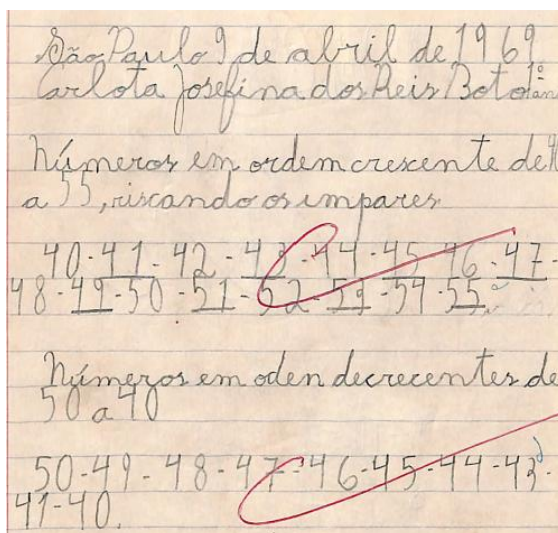 São Paulo 9 de abril de 1969
Carlota Josefina dos Reis Boto 1º an
Números em ordem crescente de 4
a 55, riscando os impares
40-41-42-43-44-45-46-47-
48-49-50-51-52-53-54-55.
Números em oden decrecentes de
50 a 40
50-49-48-47-46-45-44-43-
41-40.